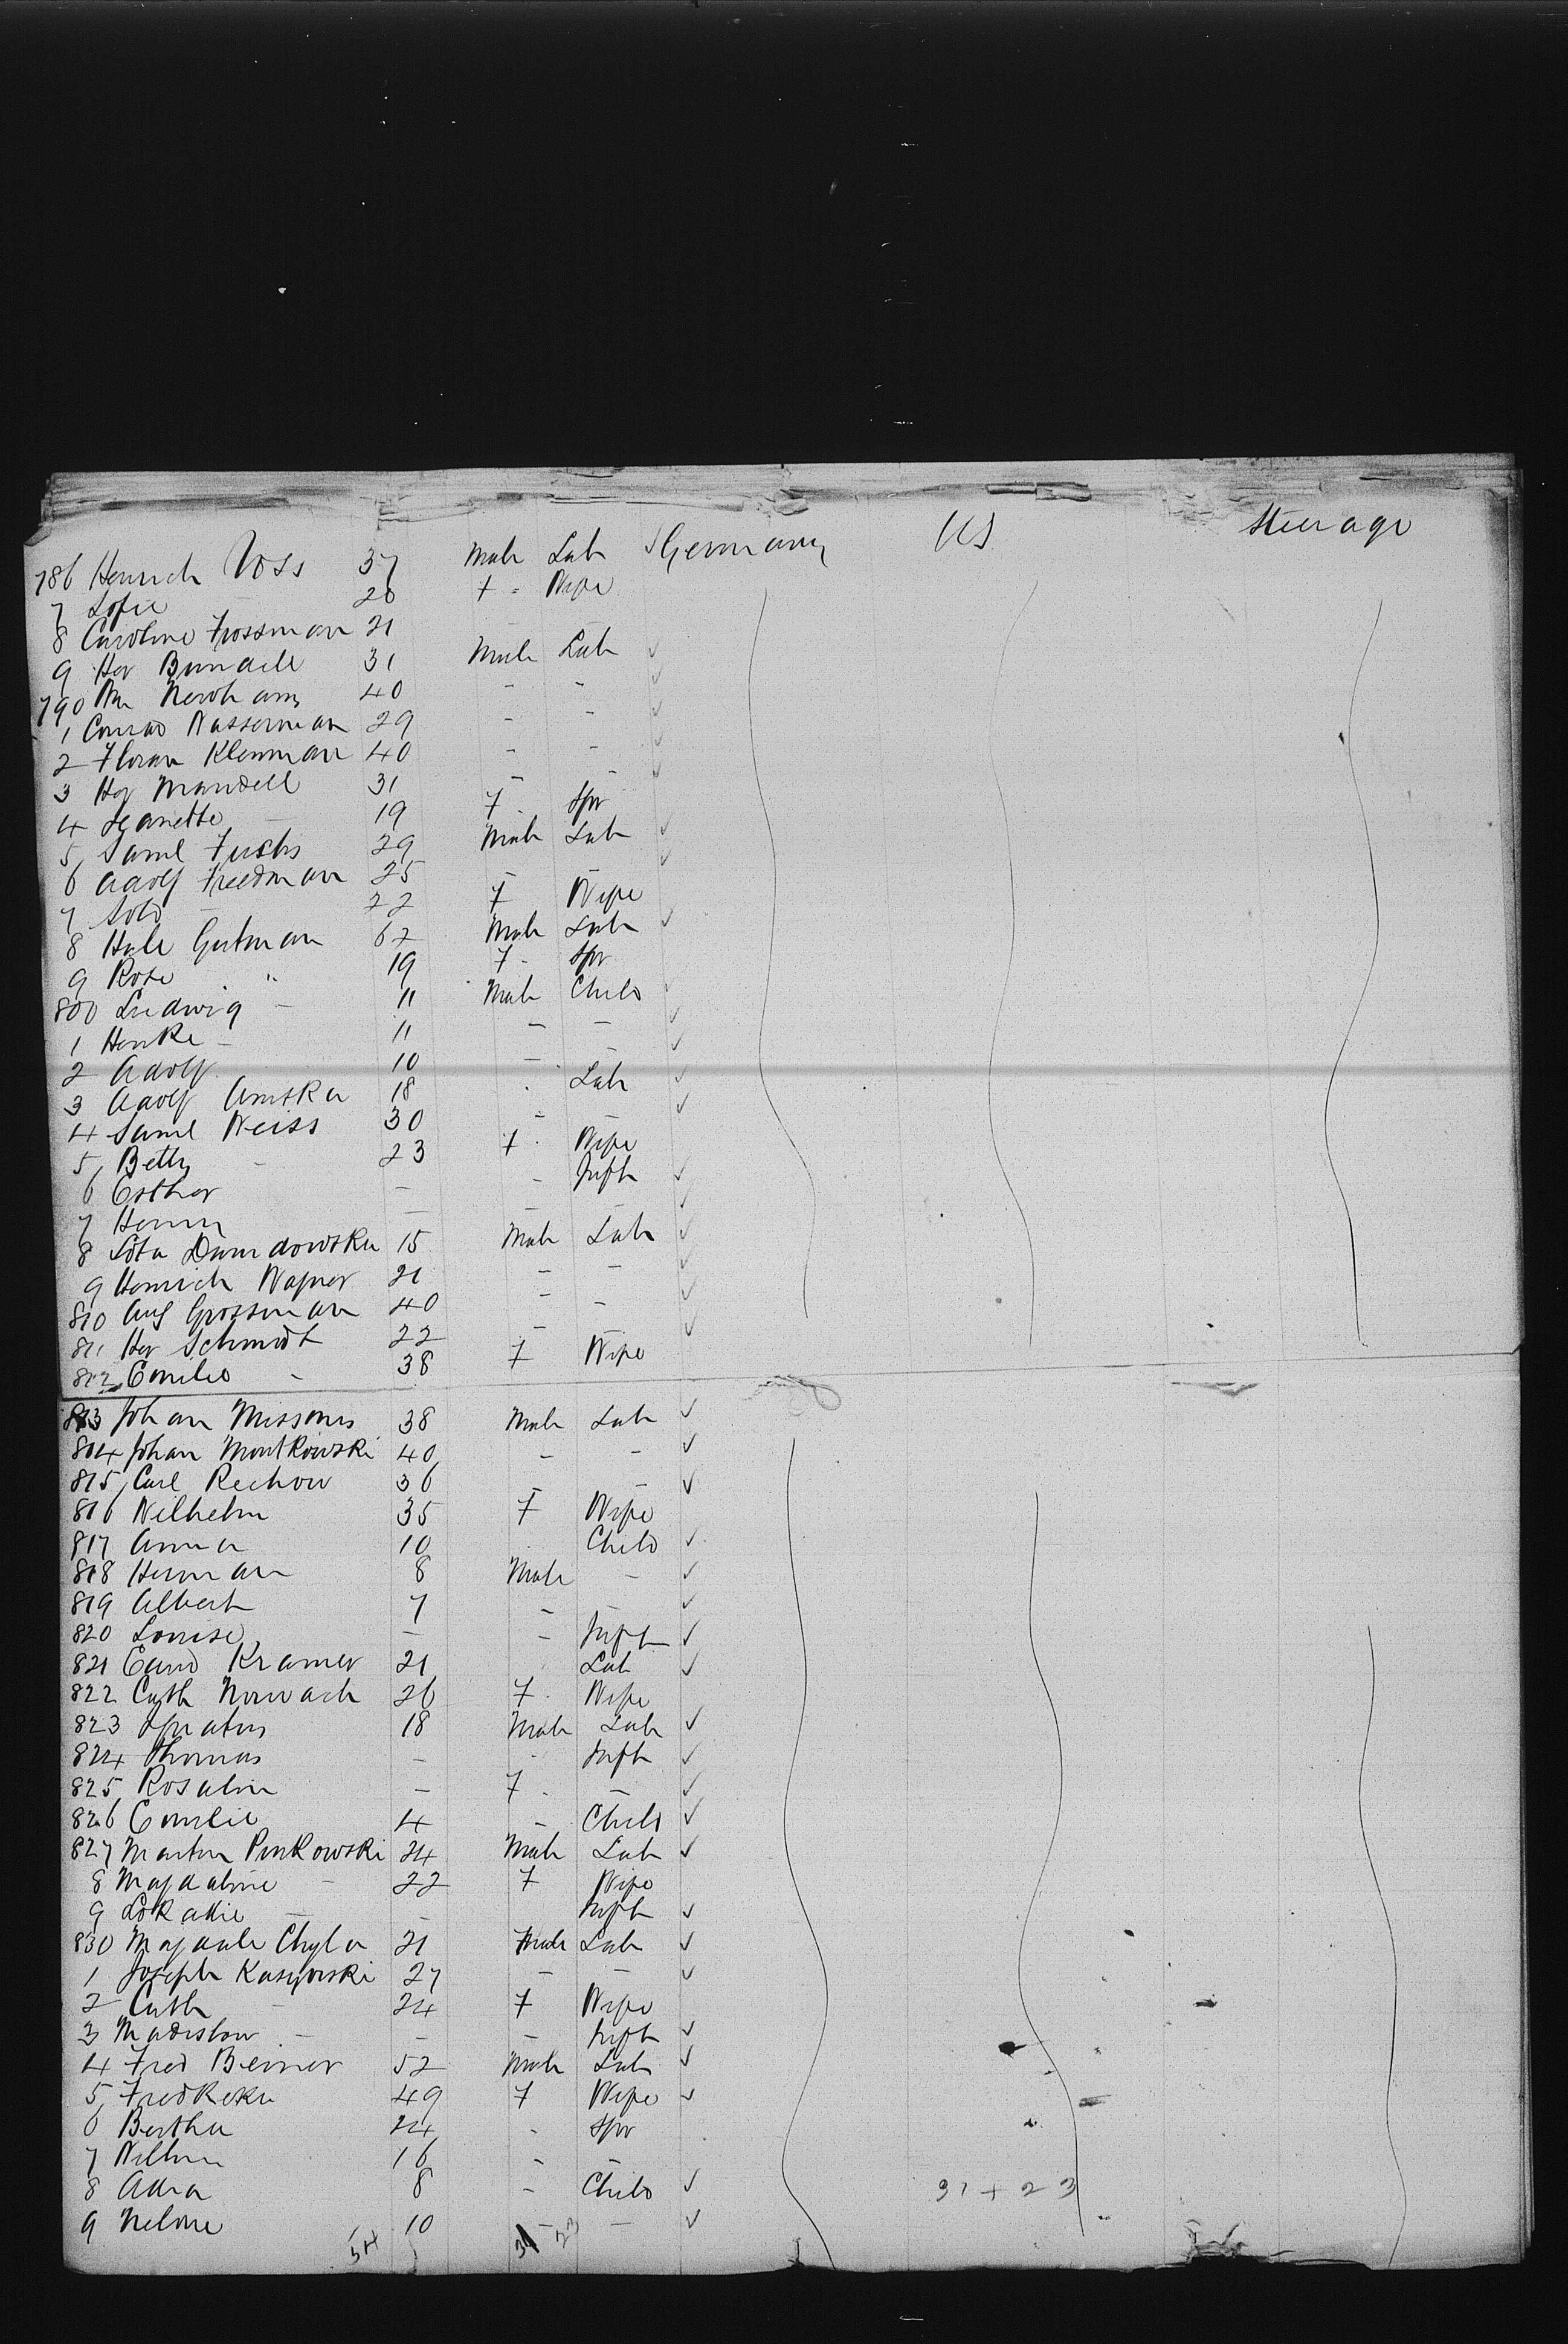 786 Henrich Voss 37 Male Lab ✓ Germany US Steerage
7 Sofie - 28 F - Wife
8 Caroline Frossman 21
9 Her Bunach 31 Male Lab ✓
790 Wm 40 - - ✓
1 Conrad Wasserman 29 - - ✓
2 Floran Klenman 40 - - ✓
3 Her Mandell 31 - - ✓
4 Jeanette - 19 F Spr
5 Saml Fuchs 29 Male Lab ✓
6 Adolf Freedman 25 - - ✓
7 - 22 F Wife
8 Gutman 62 Male Lab ✓
9 Rosa " 19 F - Spr
800 Ludwig - 11 Male Child ✓
1 Henke - 11 - - ✓
2 Adolf 10 - - ✓
3 Adolf 18 Lab ✓
4 Saml Weiss 30 - - ✓
5 Betty - 23 F Wife
6 Esther - - Inft ✓
7 - - - ✓
8 15 Male Lab ✓
9 Henrich Wagner 21 - - ✓
810 Aug Grossman 40 - - ✓
811 Her Schmidt 22 - - ✓
812 Emilie - 38 F Wife
813 Johan 38 Male Lab ✓
814 Johan Montkowski 40 - - ✓
815 Carl Rechow 36 - - ✓
816 Wilhelm 35 F Wife
817 Anna 10 Child ✓
818 Herman 8 Male - ✓
819 Albert 7 - - ✓
820 Louise - - Inft ✓
821 Kramer 21 Lab ✓
822 Cath Nowach 26 F Wife
823 18 Male Lab ✓
824 Thomas - Inft ✓
825 Rosaline - F - ✓
826 Emilie 4 - Child ✓
827 Martin Pinkowski 24 Male Lab ✓
8 Magdaline - 22 F Wife
9 - - Inft ✓
830 Chyla 21 Male Lab ✓
1 Joseph 27 - - ✓
2 Cath - 24 F Wife
3 - - - Inft ✓
4 Fred Berner 52 Male Lab ✓
5 49 F Wife ✓
6 Bertha 24 - Spr
7 16 - -
8 8 - Child ✓
9 10 - - ✓
31 + 23
54 31 23